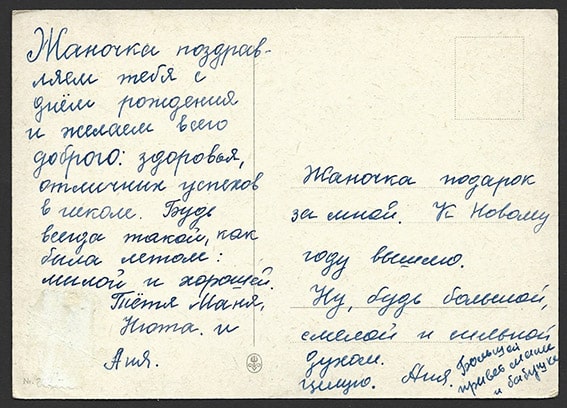 Жаночка поздрав-
ляем тебя с
днём рождения
и желаем всего
доброго: здоровья,
отличных успехов
в школе. Будь
всегда такой, как
была летом:
милой и хорошей.
Тётя Маня,
Нюта. и
Аня.
Жаночка подарок
за мной. К Новому
году вышлю.
Ну, будь большой,
смелой и сильной
духом.
Целую. Аня. Большой
привет маме
и бабушке